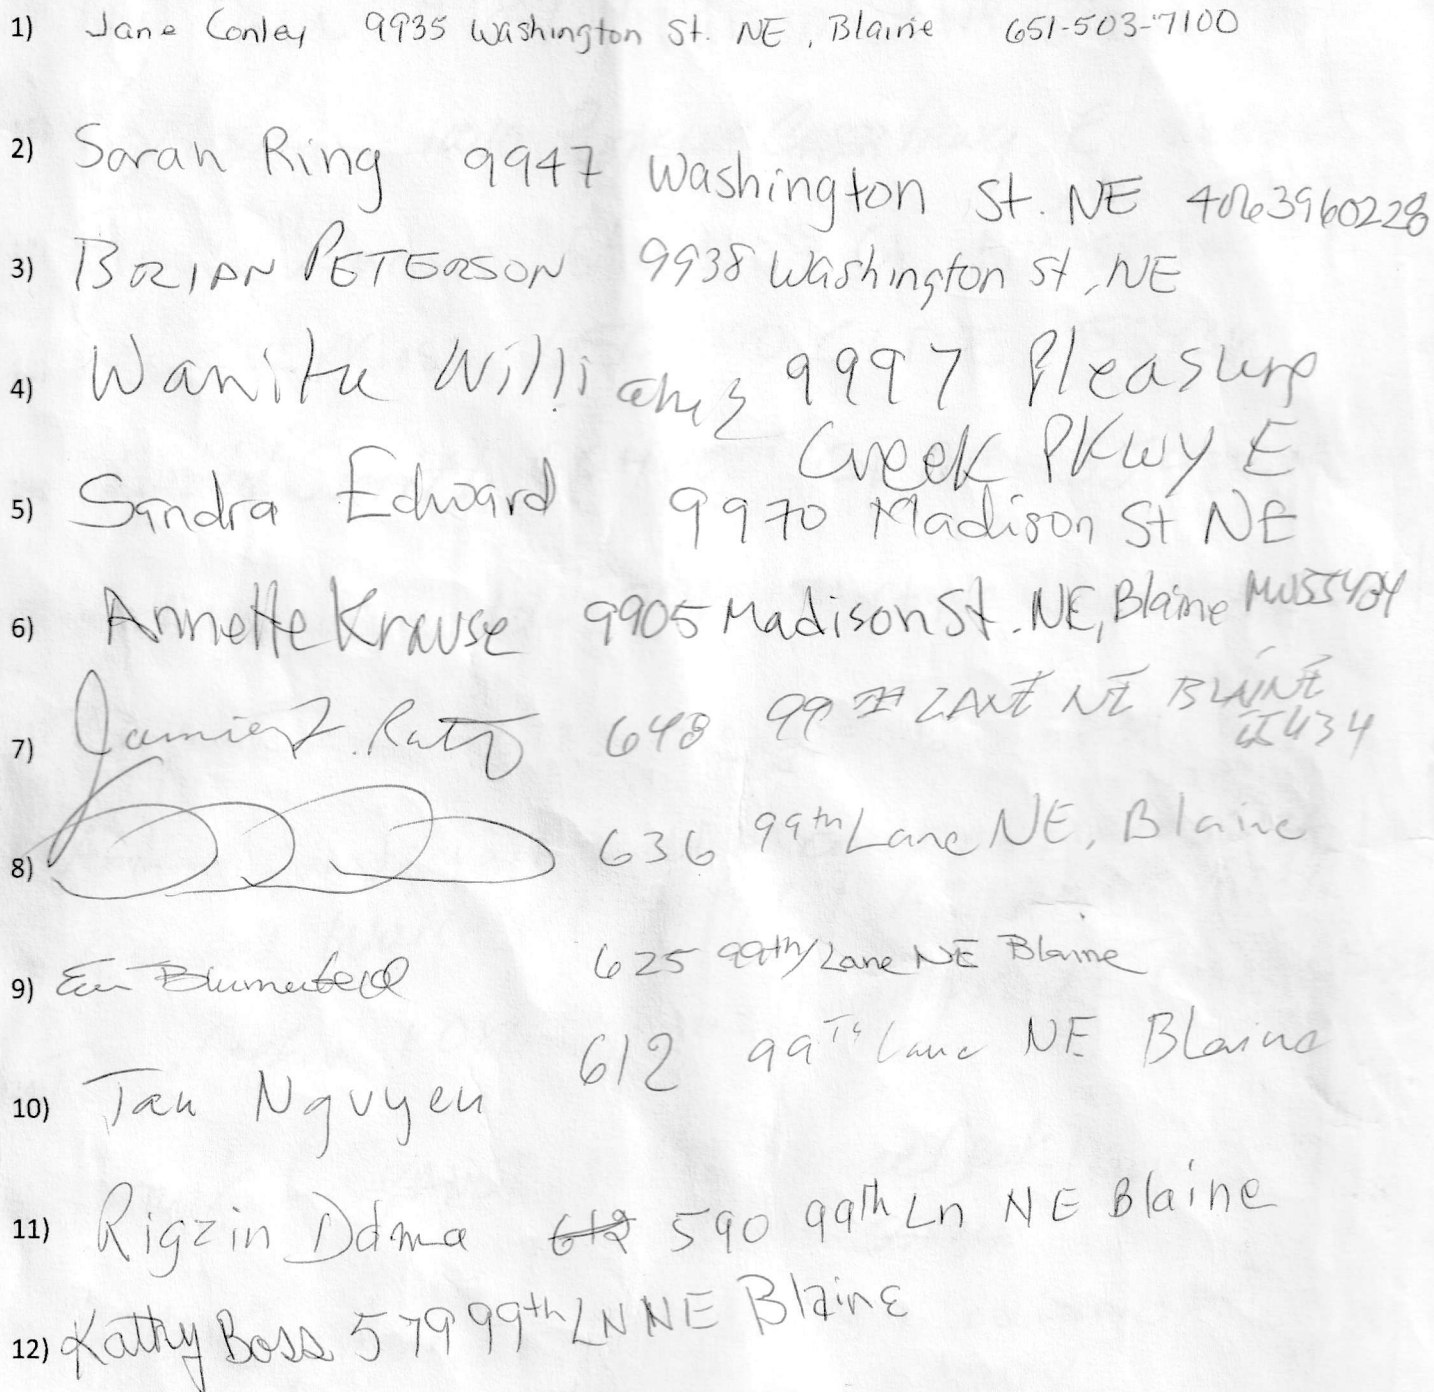 1) Jane Conley 9935 Washington St. NE, Blaine 651-503-7100
2) Sarah Ring 9947 Washington St. NE 4063960228
3) BRIAN PETERSON 9938 Washington St, NE
4) Wanita Williams 9997 Pleasure
Creek PKWY E
5) Sandra Edward 9970 Madison St NE
6) Annette Krause 9905 Madison St. NE, Blaine MN 55434
7) Jamie 648 99TH LANE NE BLAINE
55434
8) 636 99th Lane NE, Blaine
9) Blumenfeld 625 99th Lane NE Blaine
10) Tan Nguyen 612 99Th Lane NE Blaine
11) Rigzin Dolma 612 590 99th Ln NE Blaine
12) Kathy Boss 579 99th LN NE Blaine